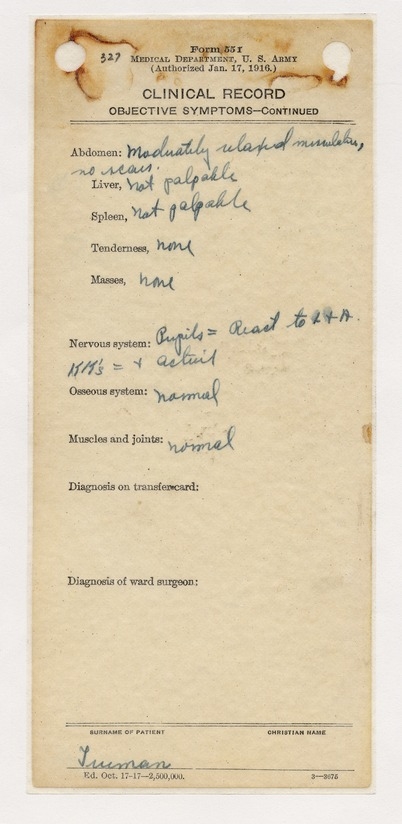 327
Form 55 f
MEDICAL DEPARTMENT, U. S. ARMY
(Authorized Jan. 17, 1916.)
CLINICAL RECORD
OBJECTIVE SYMPTOMS—CONTINUED
Abdomen: Moderately relaxed musculature,
no scars.
Liver, Not palpable
Spleen, Not palpable
Tenderness, none
Masses, none
Nervous system: Pupils = React to L + A.
KK's = + active
Osseous system: normal
Muscles and joints: normal
Diagnosis on transfer card:
Diagnosis of ward surgeon:
SURNAME OF PATIENT CHRISTIAN NAME
Truman
Ed. Oct. 17-17—2,500,000. 3—3675